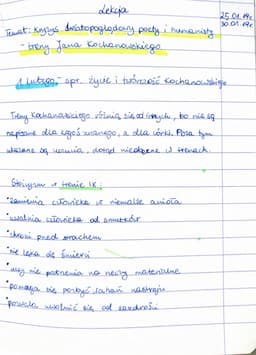 Lekcja
25.01.19r.
30.01.19r.
Temat: Kryzys światopoglądowy poety i humanisty
- treny Jana Kochanowskiego.
1 lutego, spr. życie i twórczość Kochanowskiego
Treny Kochanowskiego różnią się od innych, bo nie są
napisane dla kogoś znanego, a dla córki. Poza tym
ukazane są uczucia, dotąd niedostępne w trenach.
Stoicyzm w trenie IX:
• zamienia człowieka w niemalże anioła
• uwalnia człowieka od smutków
• chroni przed strachem
• nie lęka się śmierci
• nie patrzenia na rzeczy materialne
• pomaga się pozbyć nastroju
• pozwala uwolnić się od zazdrości